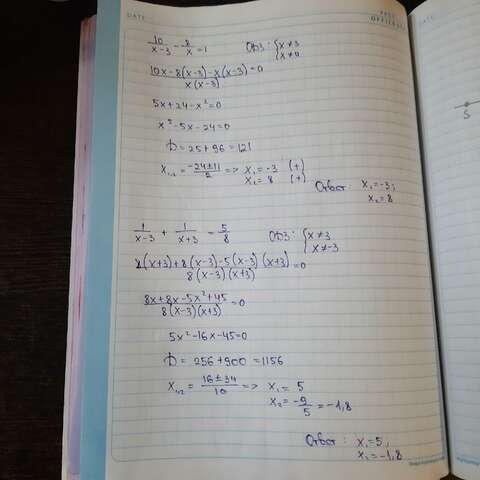 DATE
FREE
OFFICE
10/(x-3) - 8/x = 1   ОДЗ: { x ≠ 3
x ≠ 0
(10x-8(x-3)-x(x-3))/(x(x-3)) = 0
5x+24-x²=0
x²-5x-24=0
D=25+96=121
x₁,₂ = (-24±11)/2 => x₁=-3 (+)
x₂=8 (+)
Ответ: x₁=-3;
x₂=8
1/(x-3) + 1/(x+3) = 5/8   ОДЗ: { x≠3
x≠-3
(8(x+3)+8(x-3)-5(x-3)(x+3))/(8(x-3)(x+3)) = 0
(8x+8x-5x²+45)/(8(x-3)(x+3)) = 0
5x²-16x-45=0
D=256+900=1156
x₁,₂ = (16±34)/10 => x₁=5
x₂=-9/5=-1,8
Ответ: x₁=5,
x₂=-1,8
5